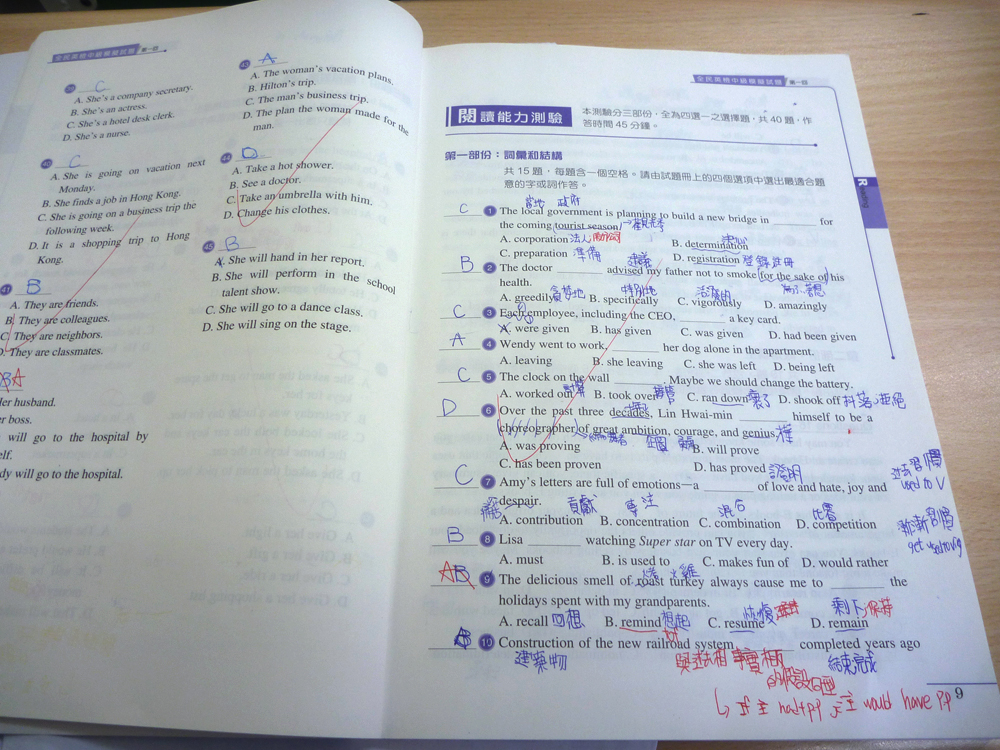 全民英檢中級模擬試題 第一回
39 C
A. She's a company secretary.
B. She's an actress.
C. She's a hotel desk clerk.
D. She's a nurse.
40 C
A. She is going on vacation next
Monday.
B. She finds a job in Hong Kong.
C. She is going on a business trip the
following week.
D. It is a shopping trip to Hong
Kong.
41 B
A. They are friends.
B. They are colleagues.
C. They are neighbors.
D. They are classmates.
BA
er husband.
er boss.
will go to the hospital by
elf.
dy will go to the hospital.
43 A
A. The woman's vacation plans.
B. Hilton's trip.
C. The man's business trip.
D. The plan the woman made for the
man.
44 D
A. Take a hot shower.
B. See a doctor.
C. Take an umbrella with him.
D. Change his clothes.
45 B
A. She will hand in her report.
B. She will perform in the school
talent show.
C. She will go to a dance class.
D. She will sing on the stage.
全民英檢中級模擬試題 第一回
閱讀能力測驗
本測驗分三部份，全為四選一之選擇題，共 40 題，作
答時間 45 分鐘。
Reading
第一部份：詞彙和結構
共 15 題，每題含一個空格。請由試題冊上的四個選項中選出最適合題
意的字或詞作答。
當地 政府
C 1 The local government is planning to build a new bridge in ______ for
the coming tourist season. 觀光季
A. corporation 法人 B. determination 決心
C. preparation 準備 D. registration 登錄 註冊
建議
B 2 The doctor ______ advised my father not to smoke for the sake of his
health.
A. greedily 貪婪地 B. specifically 特別地 C. vigorously 活潑地 D. amazingly
C 3 Each employee, including the CEO, ______ a key card.
A. were given B. has given C. was given D. had been given
A 4 Wendy went to work, ______ her dog alone in the apartment.
A. leaving B. she leaving C. she was left D. being left
C 5 The clock on the wall ______. Maybe we should change the battery.
A. worked out B. took over C. ran down D. shook off
D 6 Over the past three decades, Lin Hwai-min ______ himself to be a
choreographer of great ambition, courage, and genius.
A. was proving B. will prove
C. has been proven D. has proved 證明
C 7 Amy's letters are full of emotions—a ______ of love and hate, joy and
despair.
過去習慣
used to V
貢獻 專注 混合 比賽
A. contribution B. concentration C. combination D. competition
B 8 Lisa ______ watching Super star on TV every day.
漸漸習慣
A. must B. is used to C. makes fun of D. would rather
火雞
AB 9 The delicious smell of roast turkey always cause me to ______ the
holidays spent with my grandparents.
A. recall 回想 B. remind 想起 C. resume 恢復 D. remain 剩下 保持
10 Construction of the new railroad system ______ completed years ago
建築物 與過去相 事實相反 結束完成
的假設句型
9
If 主 had+pp 主 would have p.p